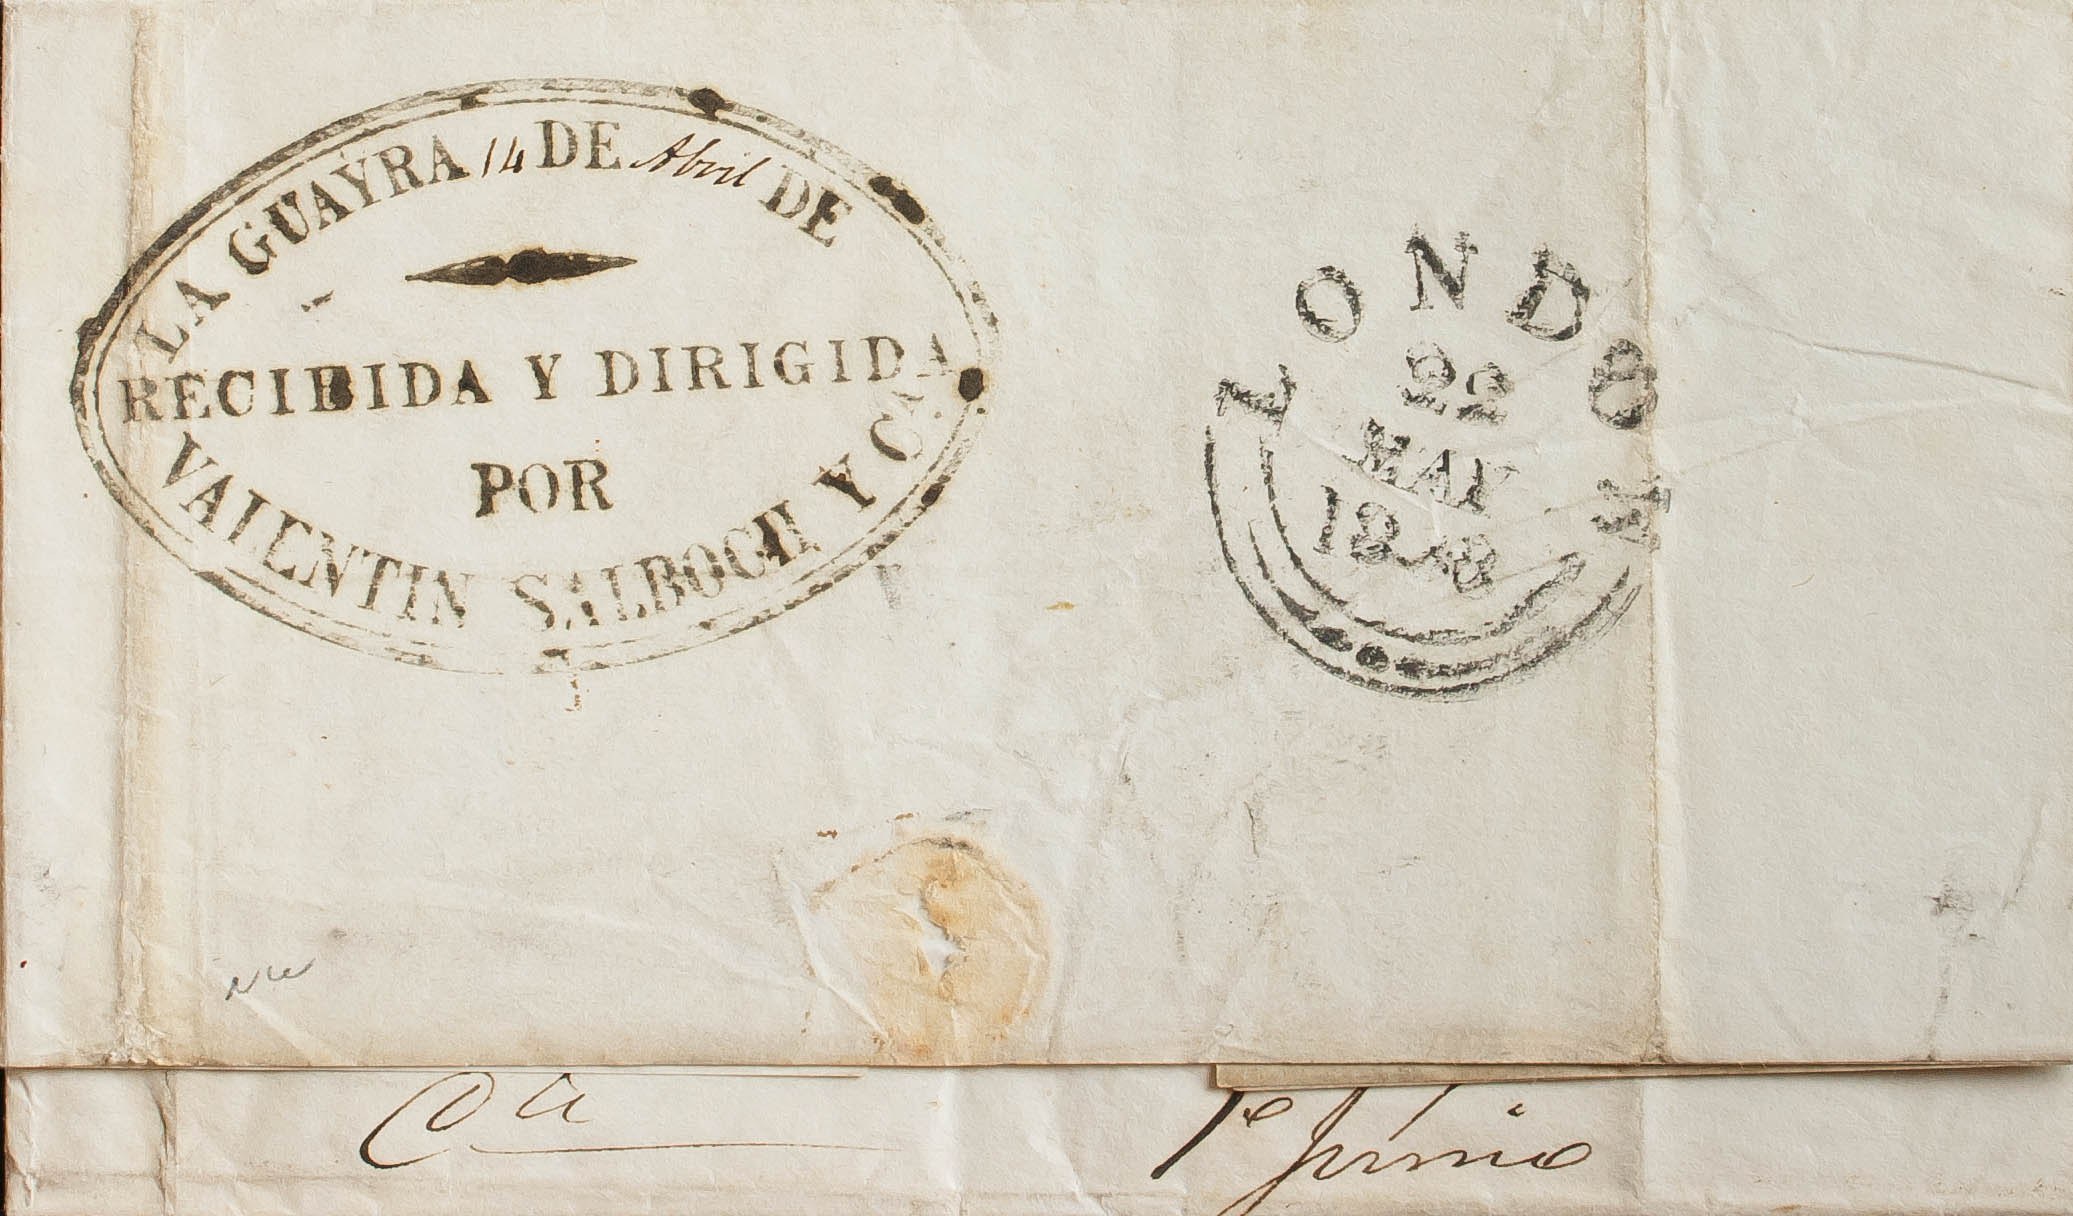 LA GUAYRA 14 DE Abril DE
RECIBIDA Y DIRIGIDA
POR
VALENTIN SALBOCH Y CA.
LONDON
22
MAY
1848
Ca
1º Junio